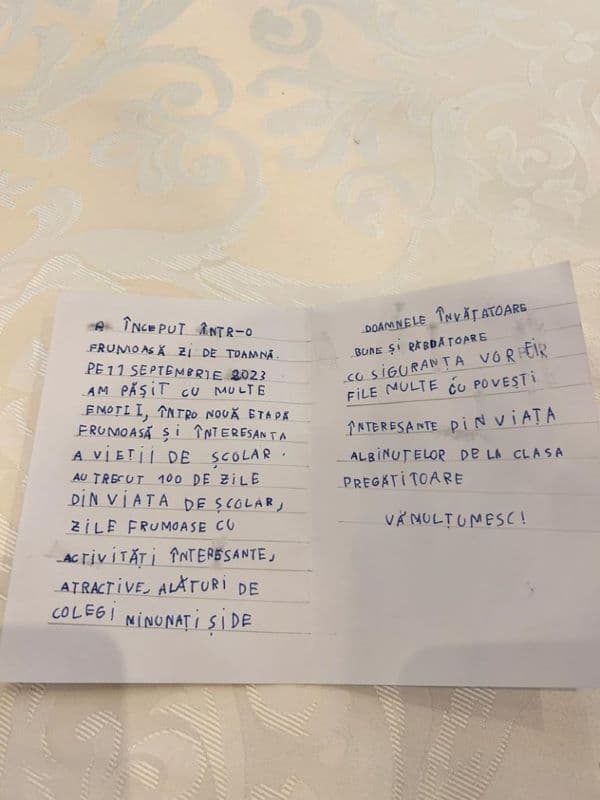 A ÎNCEPUT ÎNTR-O
FRUMOASĂ ZI DE TOAMNĂ.
PE 11 SEPTEMBRIE 2023
AM PĂȘIT CU MULTE
EMOTII, ÎNTRO NOUĂ ETAPĂ
FRUMOASĂ ȘI ÎNTERESANTA
A VIETII DE ȘCOLAR.
AU TRECUT 100 DE ZILE
DIN VIATA DE ȘCOLAR,
ZILE FRUMOASE CU
ACTIVITĂȚI ÎNTERESANTE,
ATRACTIVE, ALĂTURI DE
COLEGI MINUNAȚI ȘI DE
DOAMNELE ÎNVĂȚATOARE
BUNE ȘI RĂBDĂTOARE
CU SIGURANȚA VOR FIR
FILE MULTE CU POVEȘTI
ÎNTERESANTE DIN VIAȚA
ALBINUȚELOR DE LA CLASA
PREGĂTITOARE
VĂ MULȚUMESC!